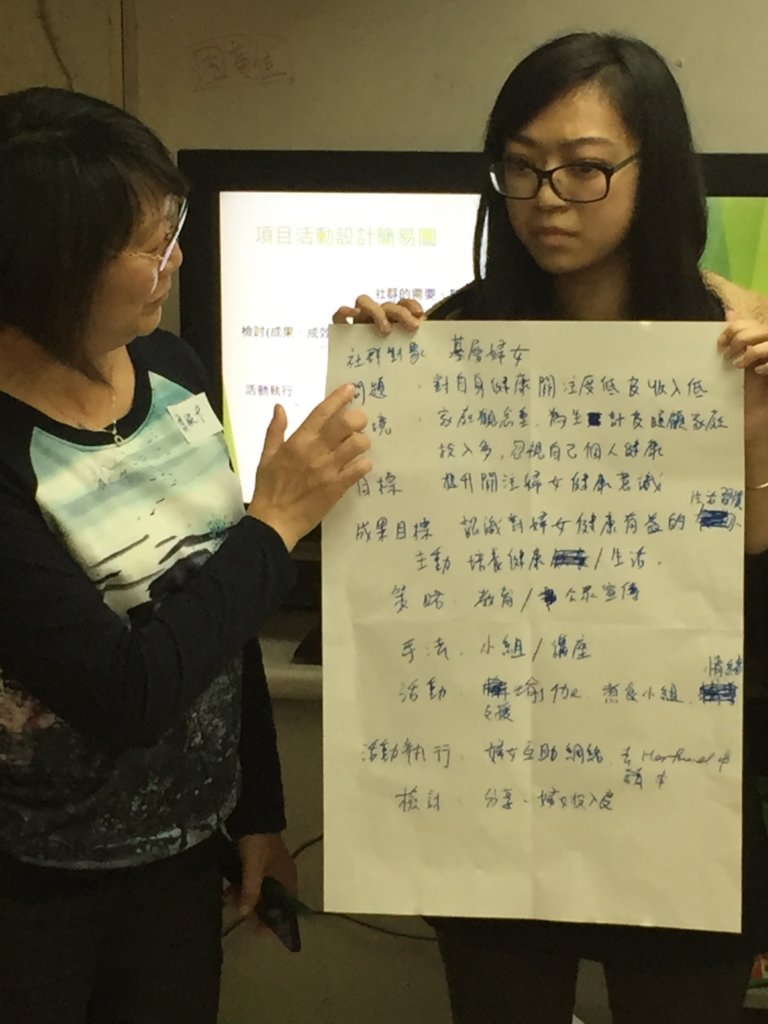 項目活動設計簡易圖
社群的需要、
檢討(成果、成效
活動執行
社群對象、基層婦女
問題、對自身健康關注度低及收入低
境、家庭觀念重，為生計及照顧家庭
投入多，忽視自己個人健康
目標 提升關注婦女健康意識
生活習慣
成果目標、認識對婦女健康有益的
主動 培養健康 / 生活。
策略、教育 / 公眾宣傳
手法、小組 / 講座
情緒
活動 瑜伽、煮食小組、
支援
活動執行、婦女互助網絡、
檢討、分享、婦女投入度